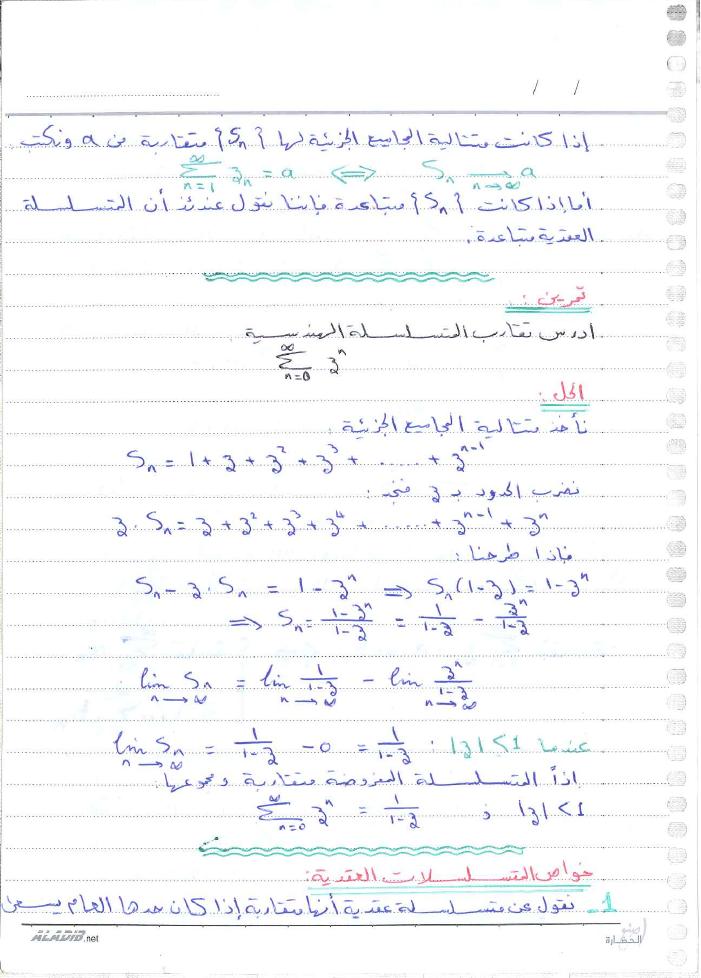 / /
إذا كانت متتالية المجاميع الجزئية لها {Sₙ} متقاربة من a ونكتب
∑_{n=1}^{∞} zₙ = a ⟺ Sₙ →_{n→∞} a
أما إذا كانت {Sₙ} متباعدة فإننا نقول عندئذ أن المتسلسلة
العقدية متباعدة.
تمرين:
ادرس تقارب المتسلسلة الهندسية
∑_{n=0}^{∞} zⁿ
الحل:
نأخذ متتالية المجاميع الجزئية:
Sₙ = 1 + z + z² + z³ + ...... + zⁿ⁻¹
نضرب الحدود بـ z فنجد:
z · Sₙ = z + z² + z³ + z⁴ + ...... + zⁿ⁻¹ + zⁿ
فإذا طرحنا:
Sₙ − z · Sₙ = 1 − zⁿ ⟹ Sₙ(1−z) = 1 − zⁿ
⟹ Sₙ = (1−zⁿ)/(1−z) = 1/(1−z) − zⁿ/(1−z)
lim_{n→∞} Sₙ = lim_{n→∞} 1/(1−z) − lim_{n→∞} zⁿ/(1−z)
عندما |z| < 1 : lim_{n→∞} Sₙ = 1/(1−z) − 0 = 1/(1−z)
إذاً المتسلسلة المفروضة متقاربة ومجموعها:
∑_{n=0}^{∞} zⁿ = 1/(1−z) ; |z| < 1
خواص المتسلسلات العقدية:
1- نقول عن متسلسلة عقدية أنها متقاربة إذا كان حدها العام يسعى
ALADIB.net
الحضارة